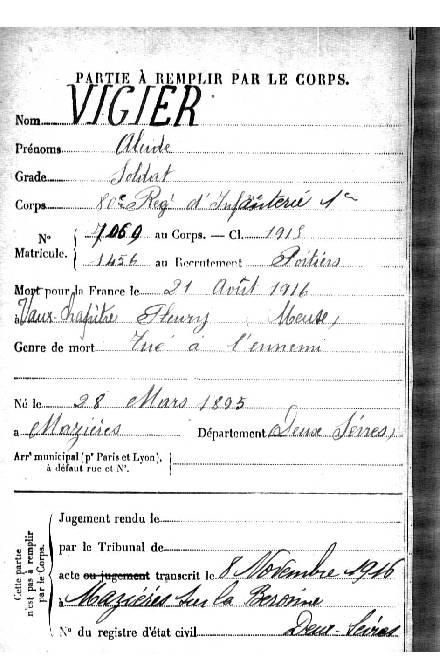 PARTIE À REMPLIR PAR LE CORPS.
Nom VIGIER
Prénoms Alude
Grade Soldat
Corps 80e Regt d'Infanterie
N° Matricule. 7069 au Corps. — Cl. 1915
1456 au Recrutement Poitiers
Mort pour la France le 21 Août 1916
à Vaux-Chapitre Fleury Meuse,
Genre de mort Tué à l'ennemi
Né le 28 Mars 1895
à Mazières Département Deux Sèvres,
Arrt municipal (pr Paris et Lyon), à défaut rue et N°.
Cette partie n'est pas à remplir par le Corps.
Jugement rendu le
par le Tribunal de
acte ou jugement transcrit le 8 Novembre 1916
à Mazières sur la Beronne
Deux-Sèvres
N° du registre d'état civil